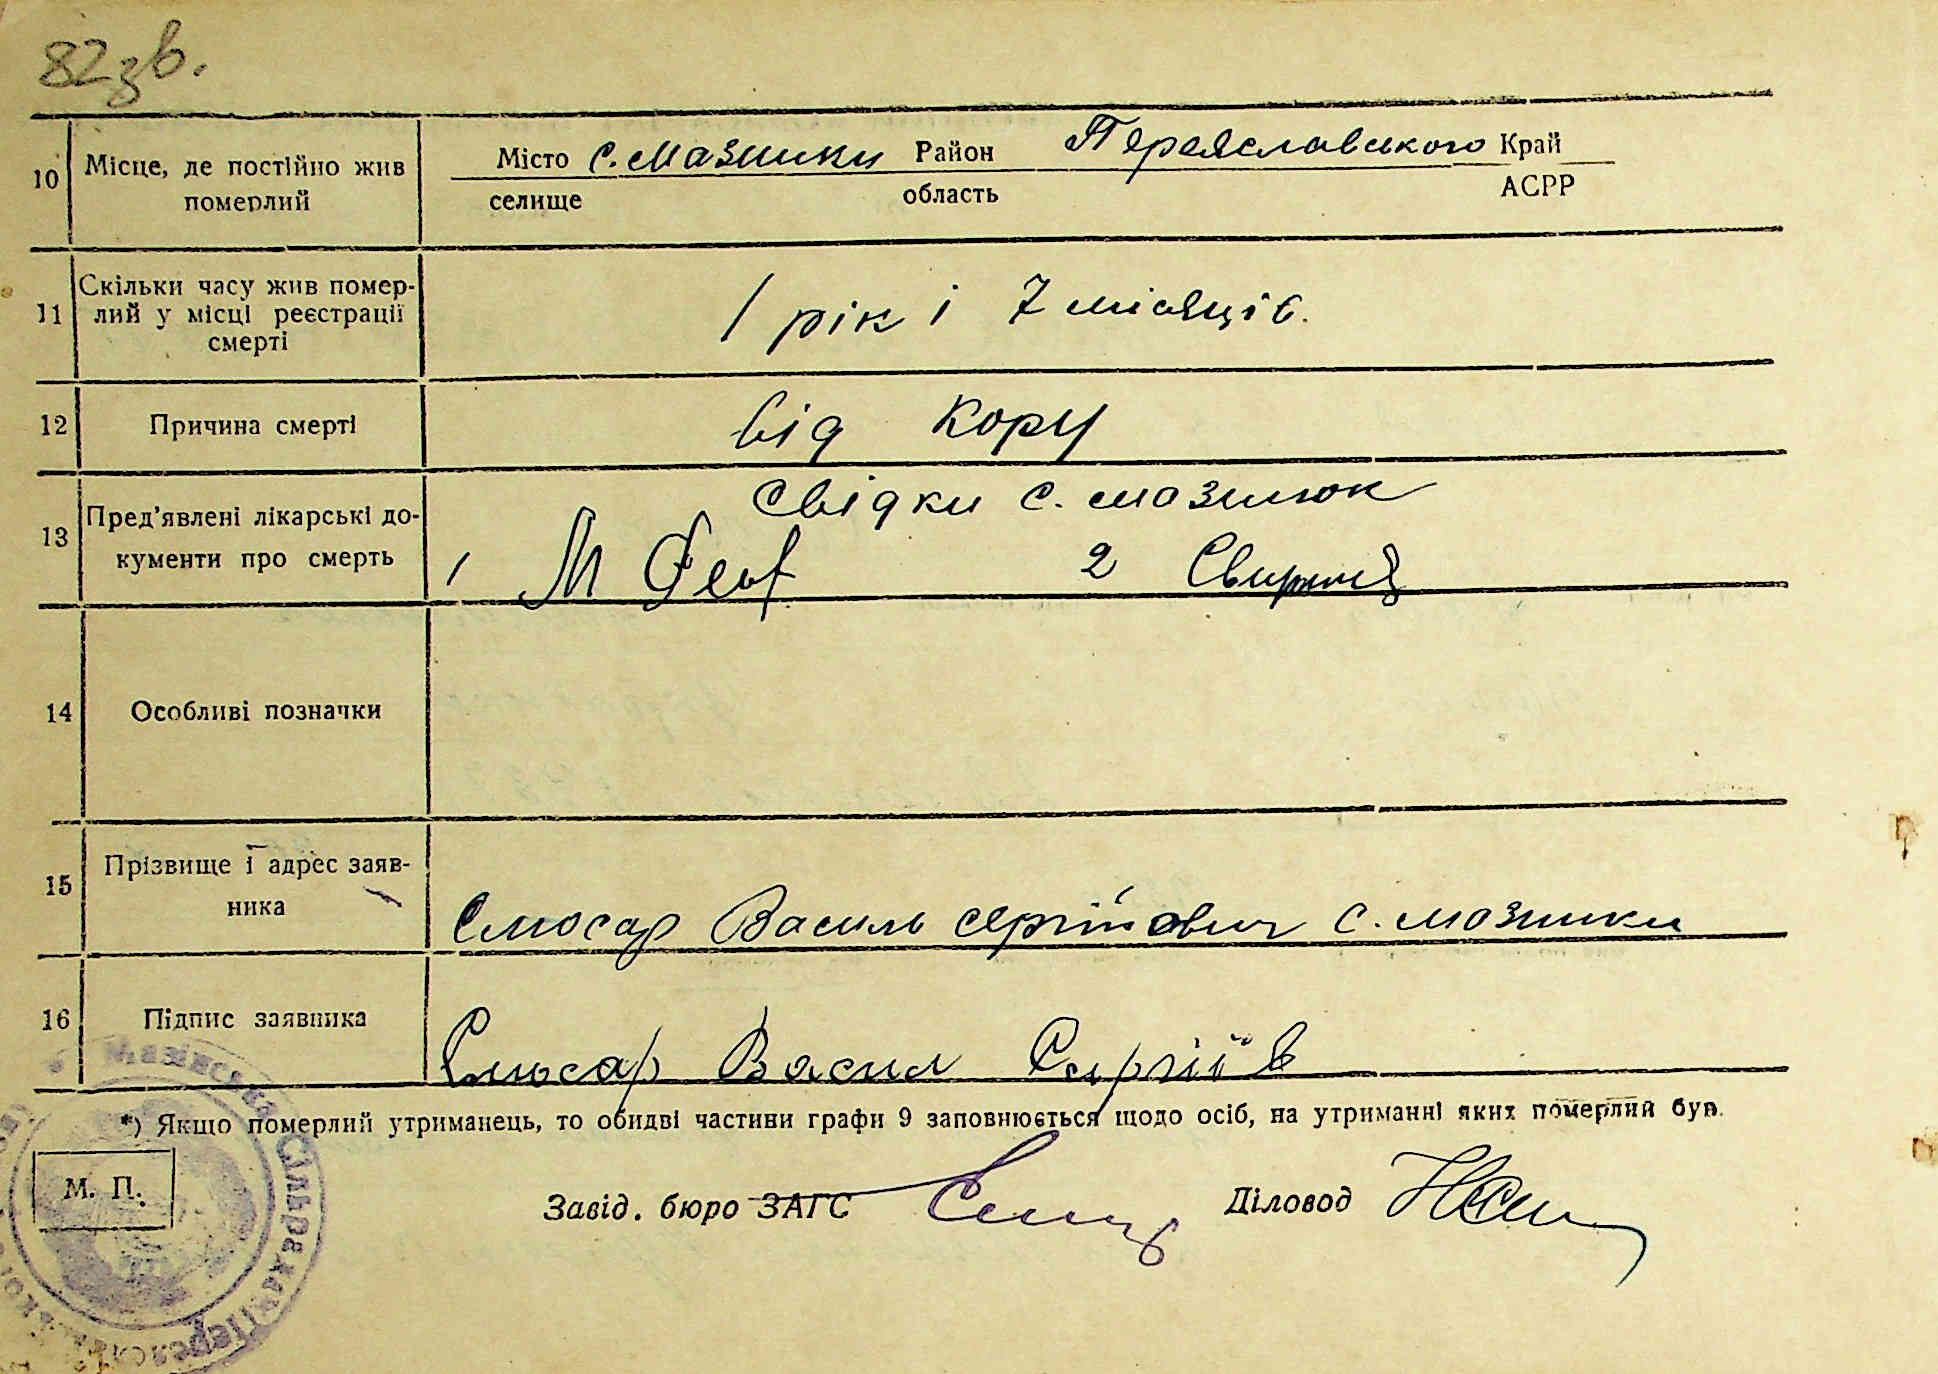 82 зв.
10 Місце, де постійно жив
померлий
Місто с. Мазінки Район Переяславського Край
селище область АСРР
11 Скільки часу жив помер-
лий у місці реєстрації
смерті
1 рік і 7 місяців.
12 Причина смерті
від кору
13 Пред'явлені лікарські до-
кументи про смерть
Свідки с. Мазінок
1 М 2
14 Особливі позначки
15 Прізвище і адрес заяв-
ника
Слюсар Василь Сергійович с. Мазінки
16 Підпис заявника
Слюсар Васил Сиргіїв
*) Якщо померлий утриманець, то обидві частини графи 9 заповнюється щодо осіб, на утриманні яких померлий був.
М. П.
Завід. бюро ЗАГС Діловод
Сільрада